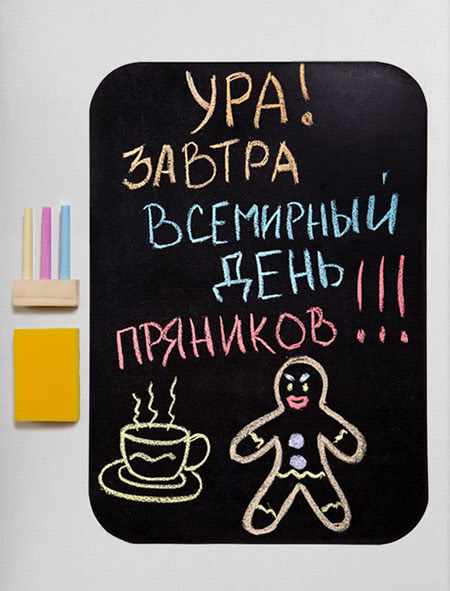 УРА!
ЗАВТРА
ВСЕМИРНЫЙ
ДЕНЬ
ПРЯНИКОВ!!!